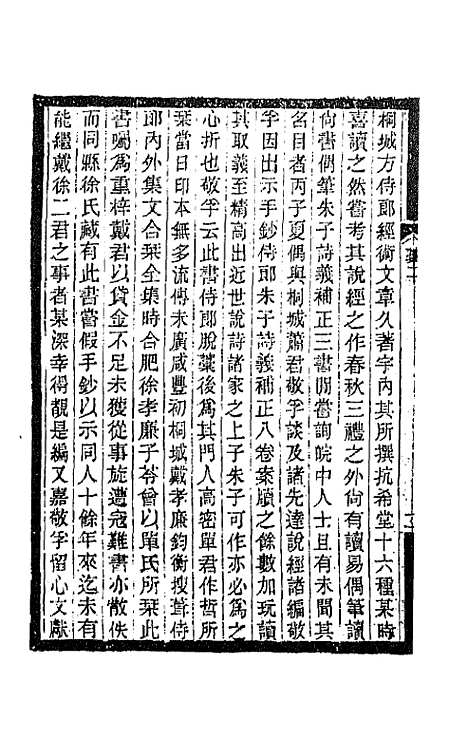 桐城方侍郎經術文章久著宇內其所撰抗希堂十六種某時
喜讀之然嘗考其說經之作春秋三禮之外尙有讀易偶筆讀
尙書偶筆朱子詩義補正三書閒嘗詢皖中人士且有未聞其
名目者丙子夏偶與桐城蕭君敬孚談及諸先達說經諸編敬
孚因出示手鈔侍郎朱子詩義補正八卷案牘之餘數加玩讀
其取義至精高出近世說詩諸家之上子朱子可作亦必爲之
心折也敬孚云此書侍郎脫藁後爲其門人高密單君作哲所
栞當日印本無多流傳未廣咸豐初桐城戴孝廉鈞衡搜葺侍
郎內外集文合栞全集時合肥徐孝廉子苓曾以單氏所栞此
書囑爲重梓戴君以貸金不足未獲從事旋遭寇難書亦散佚
而同縣徐氏藏有此書嘗假手鈔以示同人十餘年來迄未有
能繼戴徐二君之事者某深幸得覩是編又嘉敬孚留心文獻